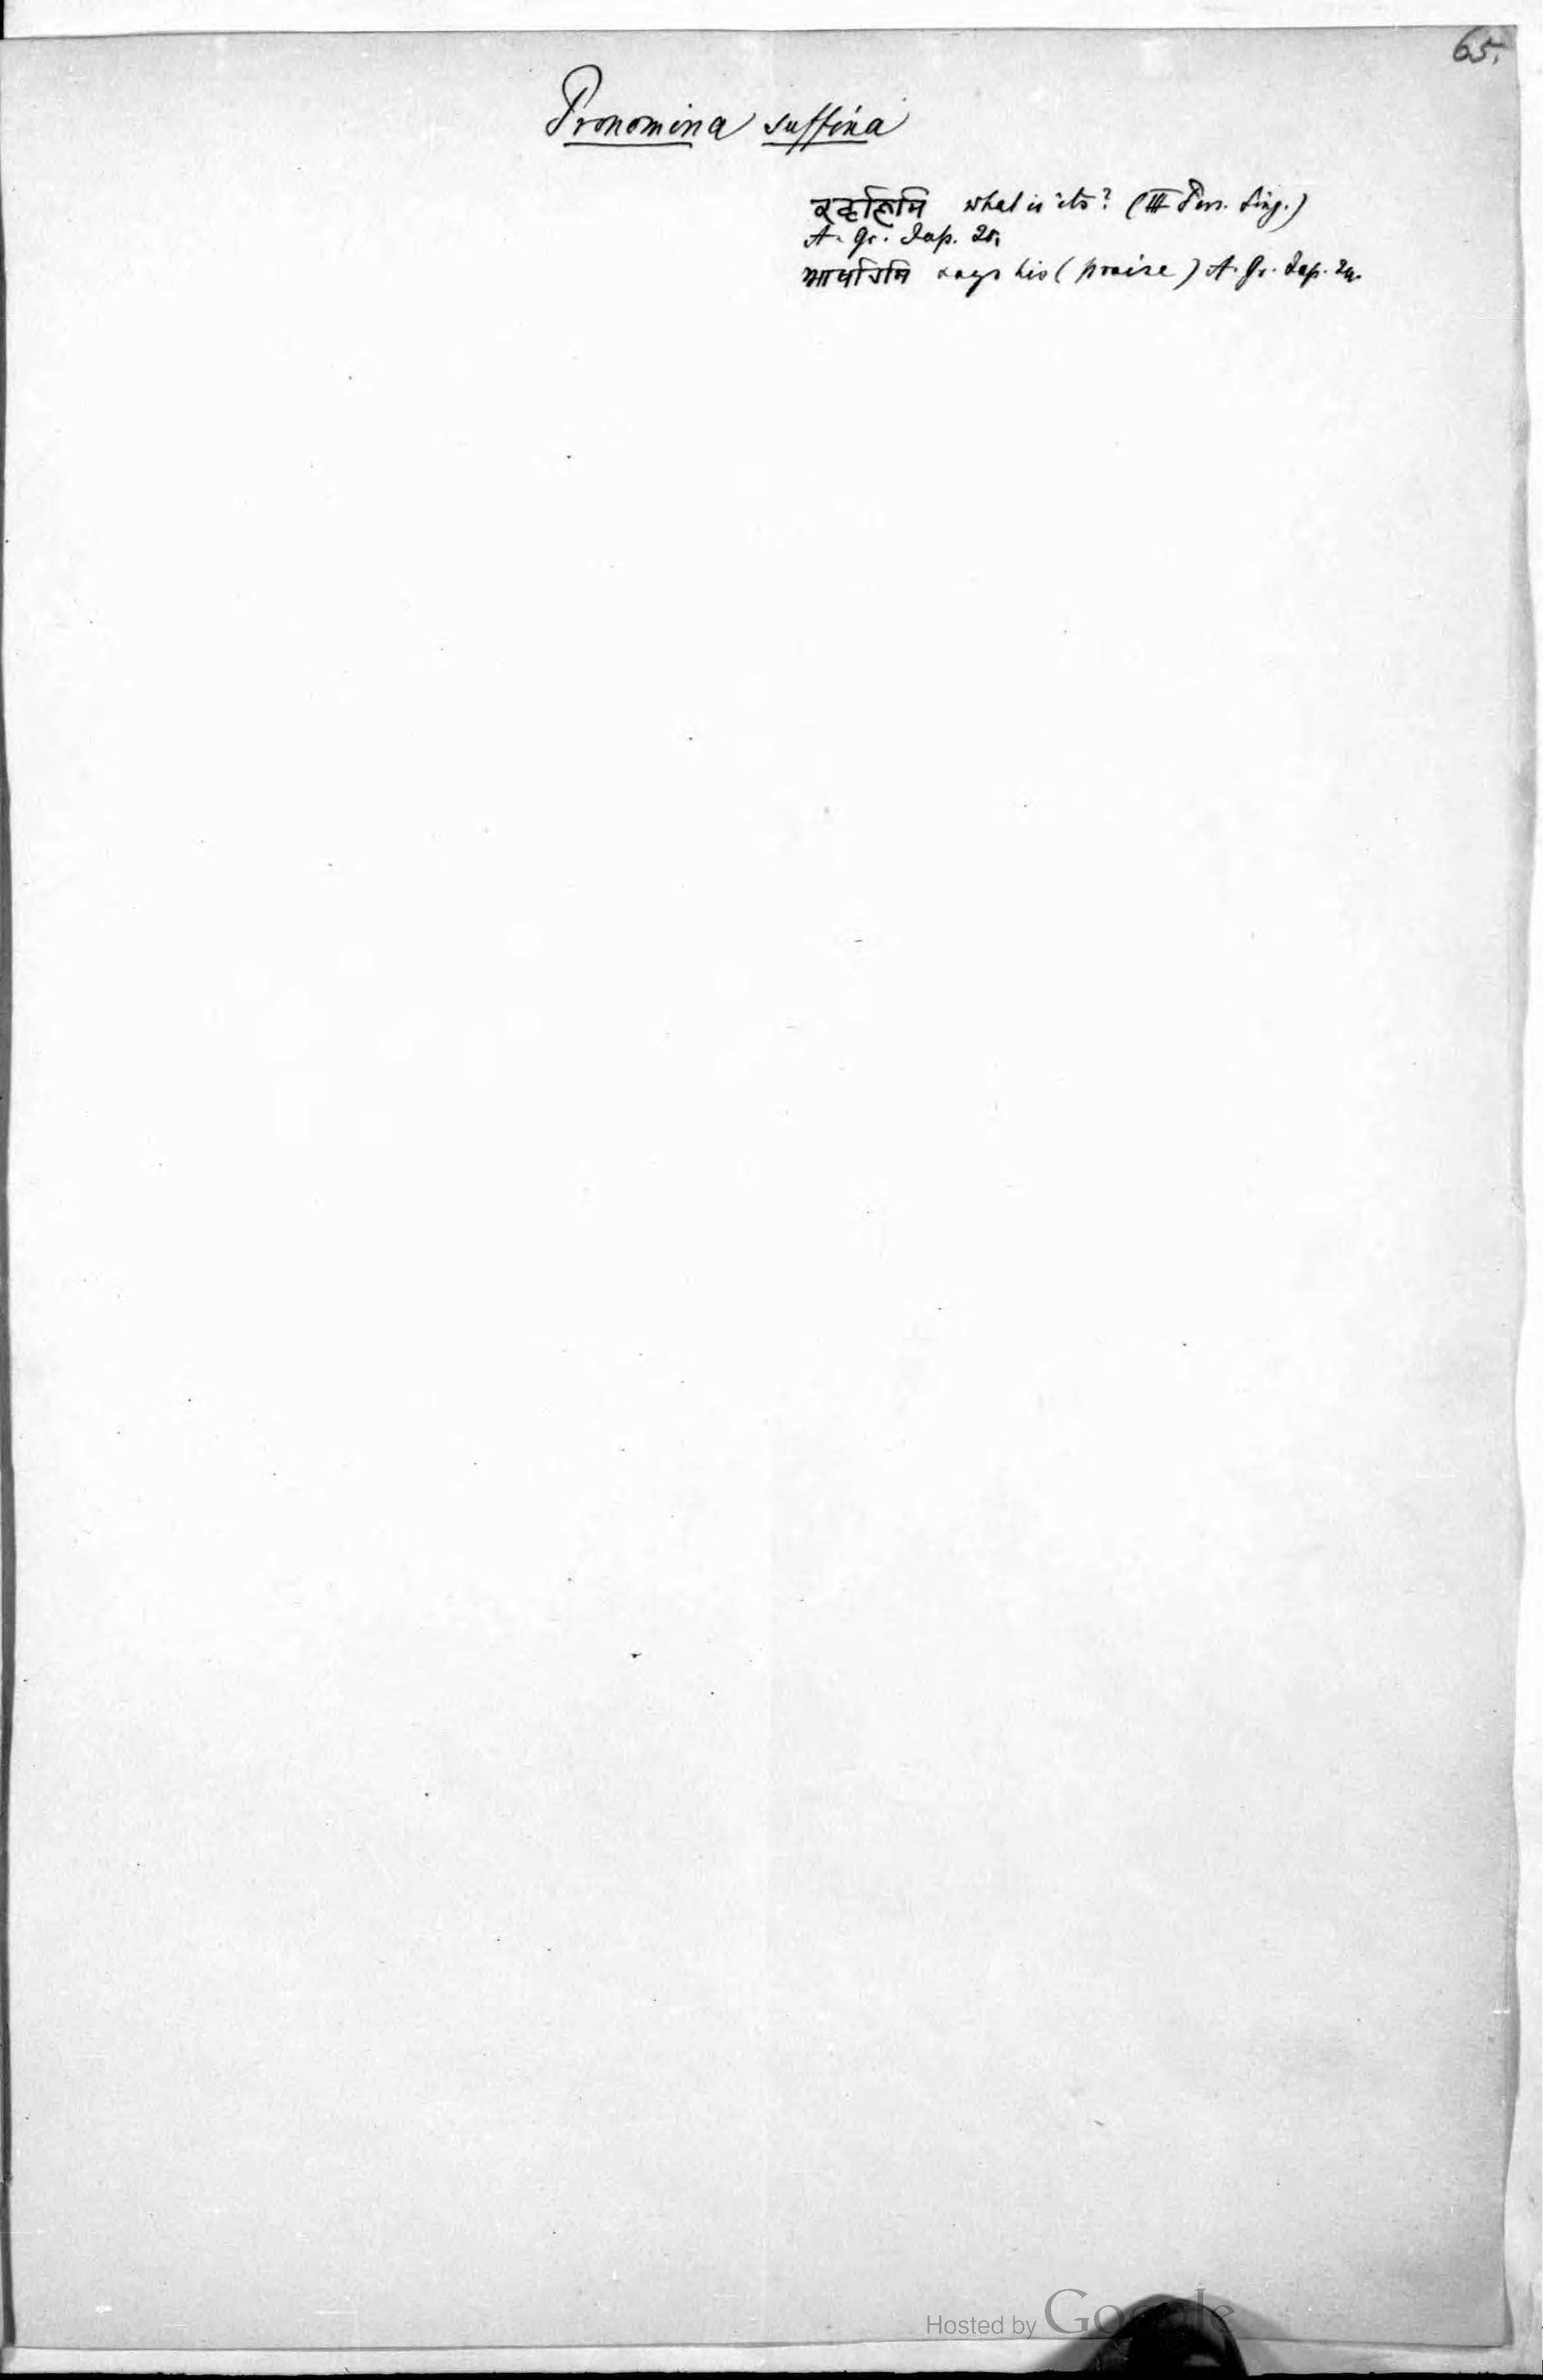 65.
Pronomina suffixa
what is its? (III Pers. Sing.)
A. Gr. Jap. 25.
says his (praise) A. Gr. Jap. 24.
Hosted by Google